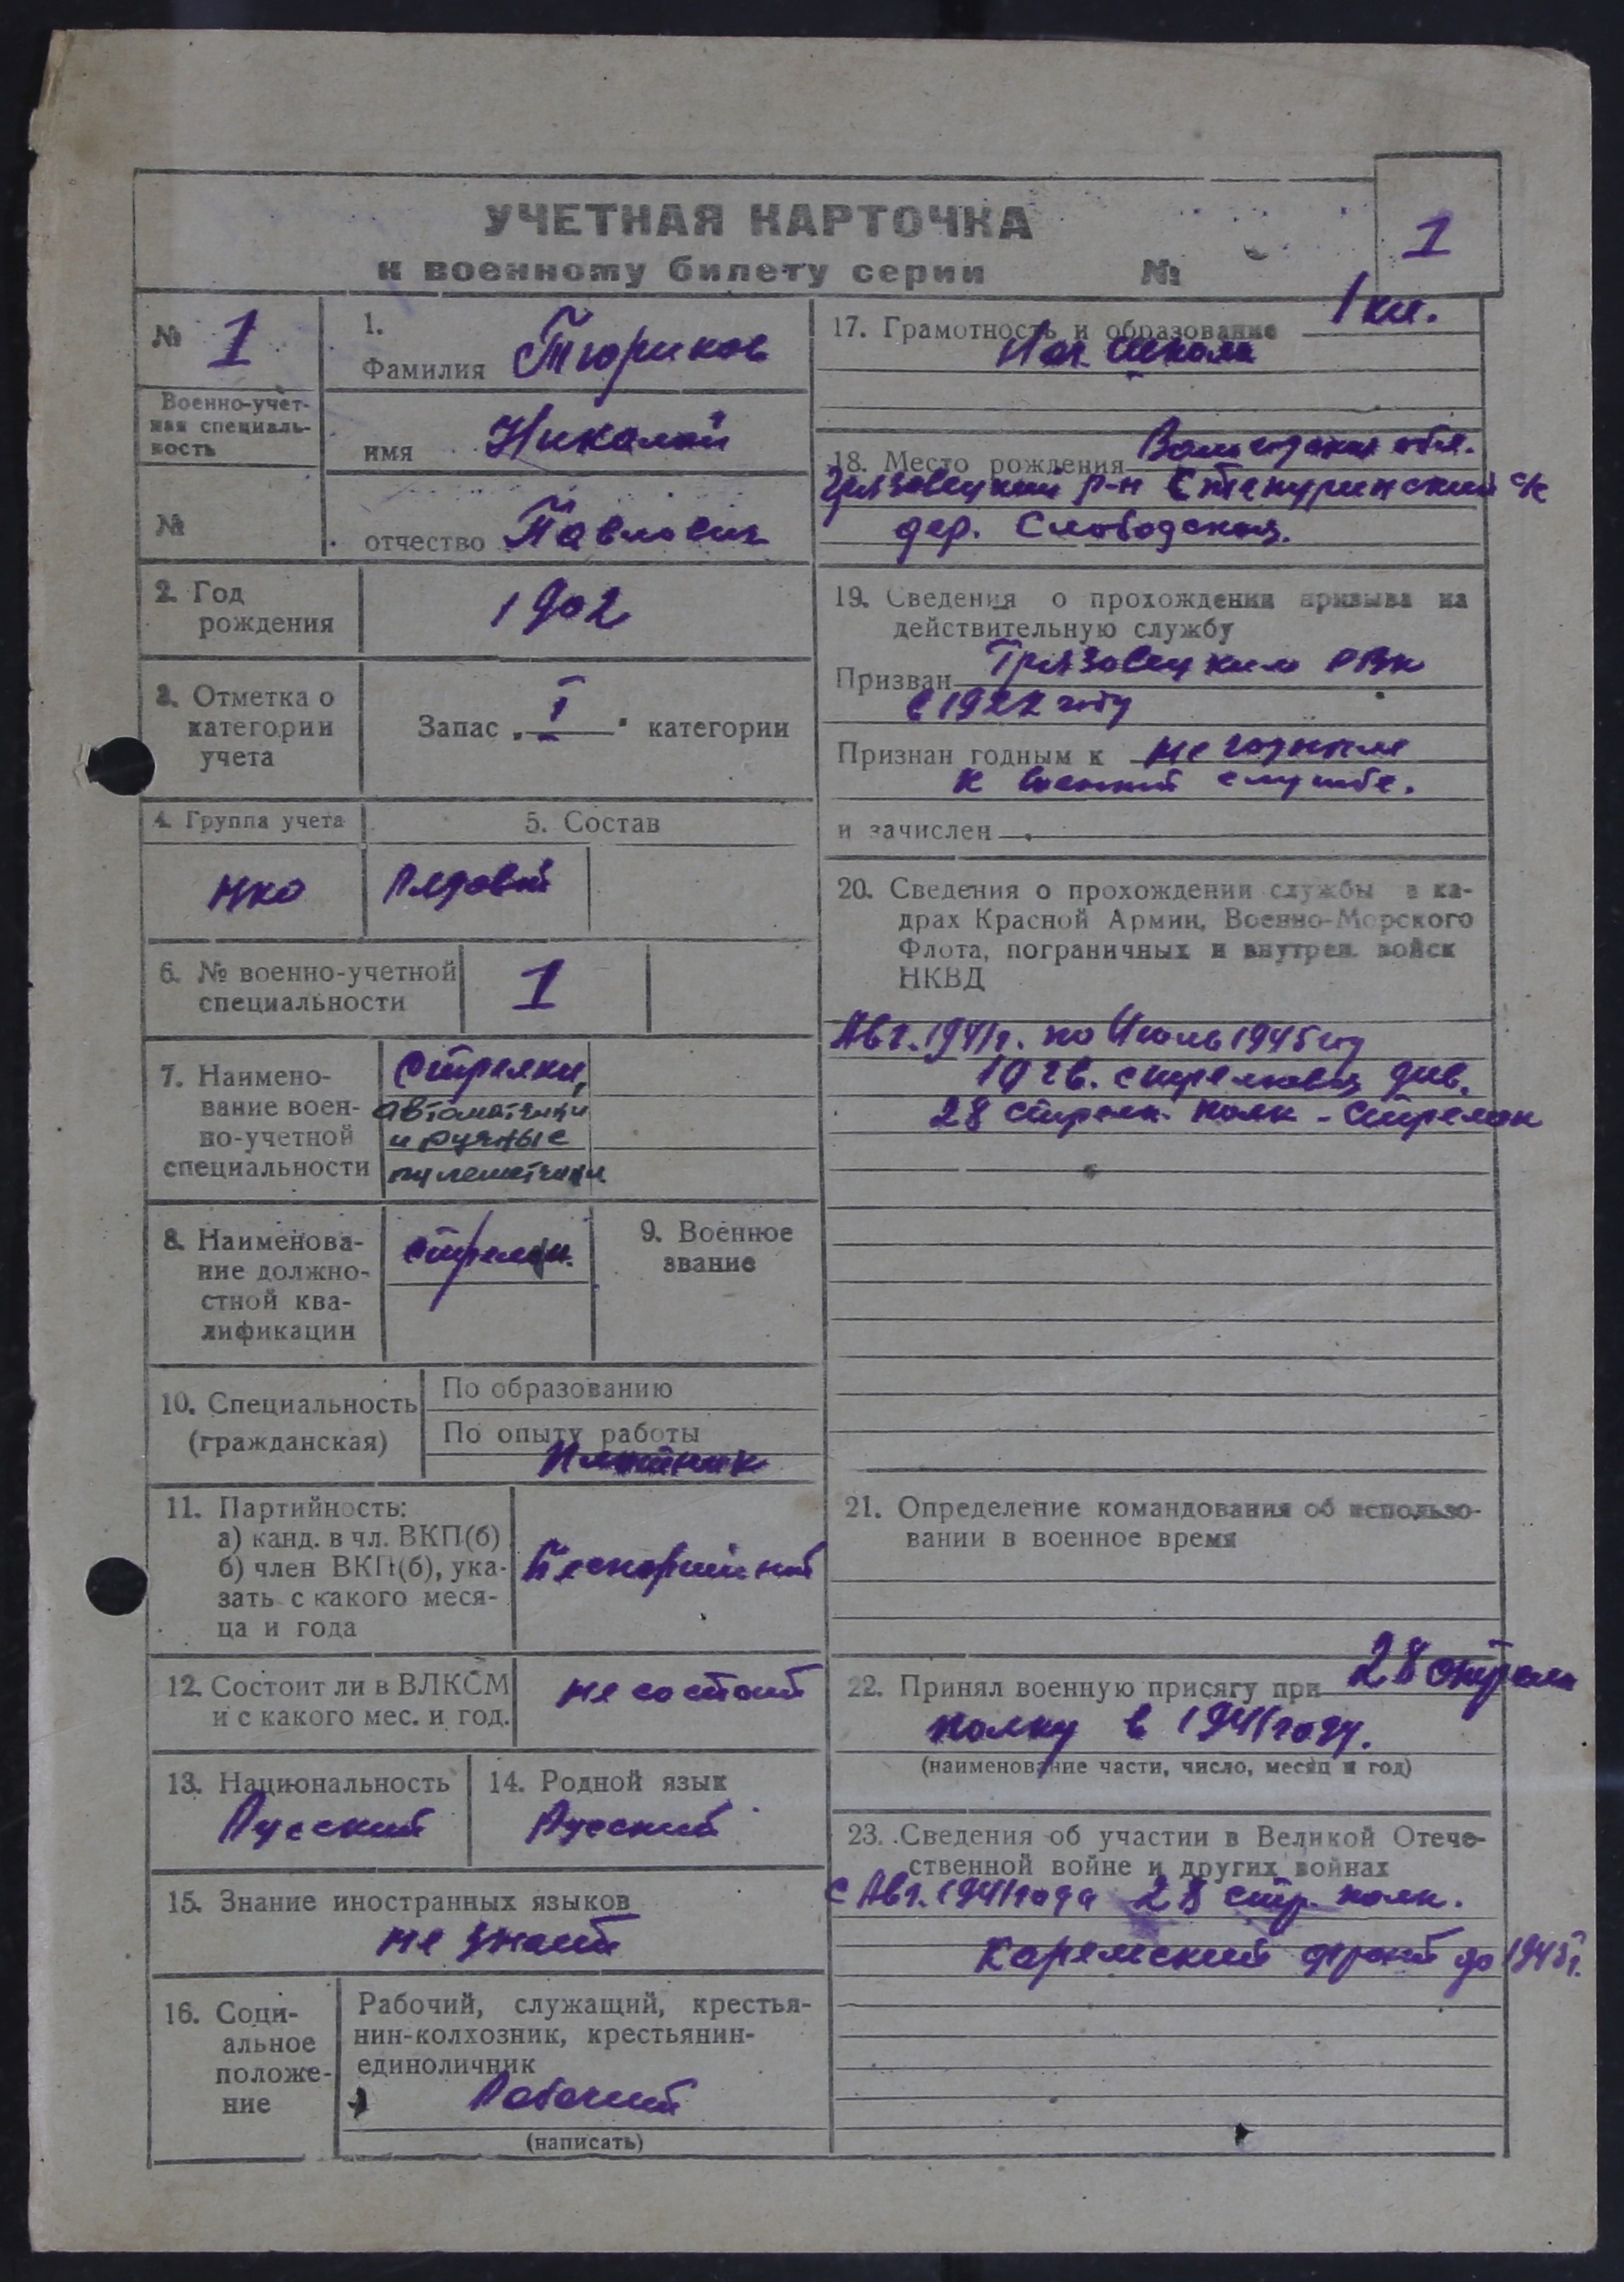 УЧЕТНАЯ КАРТОЧКА
к военному билету серии №
1
№ 1
Военно-учет-
ная специаль-
ность
№
1.
Фамилия Тюриков
имя Николай
отчество Павлович
2. Год
рождения
1902
3. Отметка о
категории
учета
Запас „I" категории
4. Группа учета
5. Состав
НКО
Рядовой
6. № военно-учетной
специальности
1
7. Наимено-
вание воен-
но-учетной
специальности
Стрелки,
автоматчики
и ручные
пулеметчики
8. Наименова-
ние должно-
стной ква-
лификации
стрелки
9. Военное
звание
10. Специальность
(гражданская)
По образованию
По опыту работы
Плотник
11. Партийность:
а) канд. в чл. ВКП(б)
б) член ВКП(б), ука-
зать с какого меся-
ца и года
Беспартийный
12. Состоит ли в ВЛКСМ
и с какого мес. и год.
не состоит
13. Национальность
Русский
14. Родной язык
Русский
15. Знание иностранных языков
не знает
16. Соци-
альное
положе-
ние
Рабочий, служащий, крестья-
нин-колхозник, крестьянин-
единоличник
Рабочий
(написать)
17. Грамотность и образование 1 кл.
Нач. школа
18. Место рождения Вологодская обл.
Грязовецкий р-н с/с
дер. Слободская.
19. Сведения о прохождении призыва на
действительную службу
Призван Грязовецким РВК
в 1922 году
Признан годным к не годным
к военной службе.
и зачислен
20. Сведения о прохождении службы в ка-
драх Красной Армии, Военно-Морского
Флота, пограничных и внутрен. войск
НКВД
Авг. 1941г. по Июль 1945 год
10 гв. стрелковая див.
28 стрелк. полк - стрелок
21. Определение командования об использо-
вании в военное время
22. Принял военную присягу при 28 стрелк
полку в 1941 году.
(наименование части, число, месяц и год)
23. Сведения об участии в Великой Отече-
ственной войне и других войнах
с Авг. 1941 года 28 стр. полк.
Карельский фронт до 1945г.